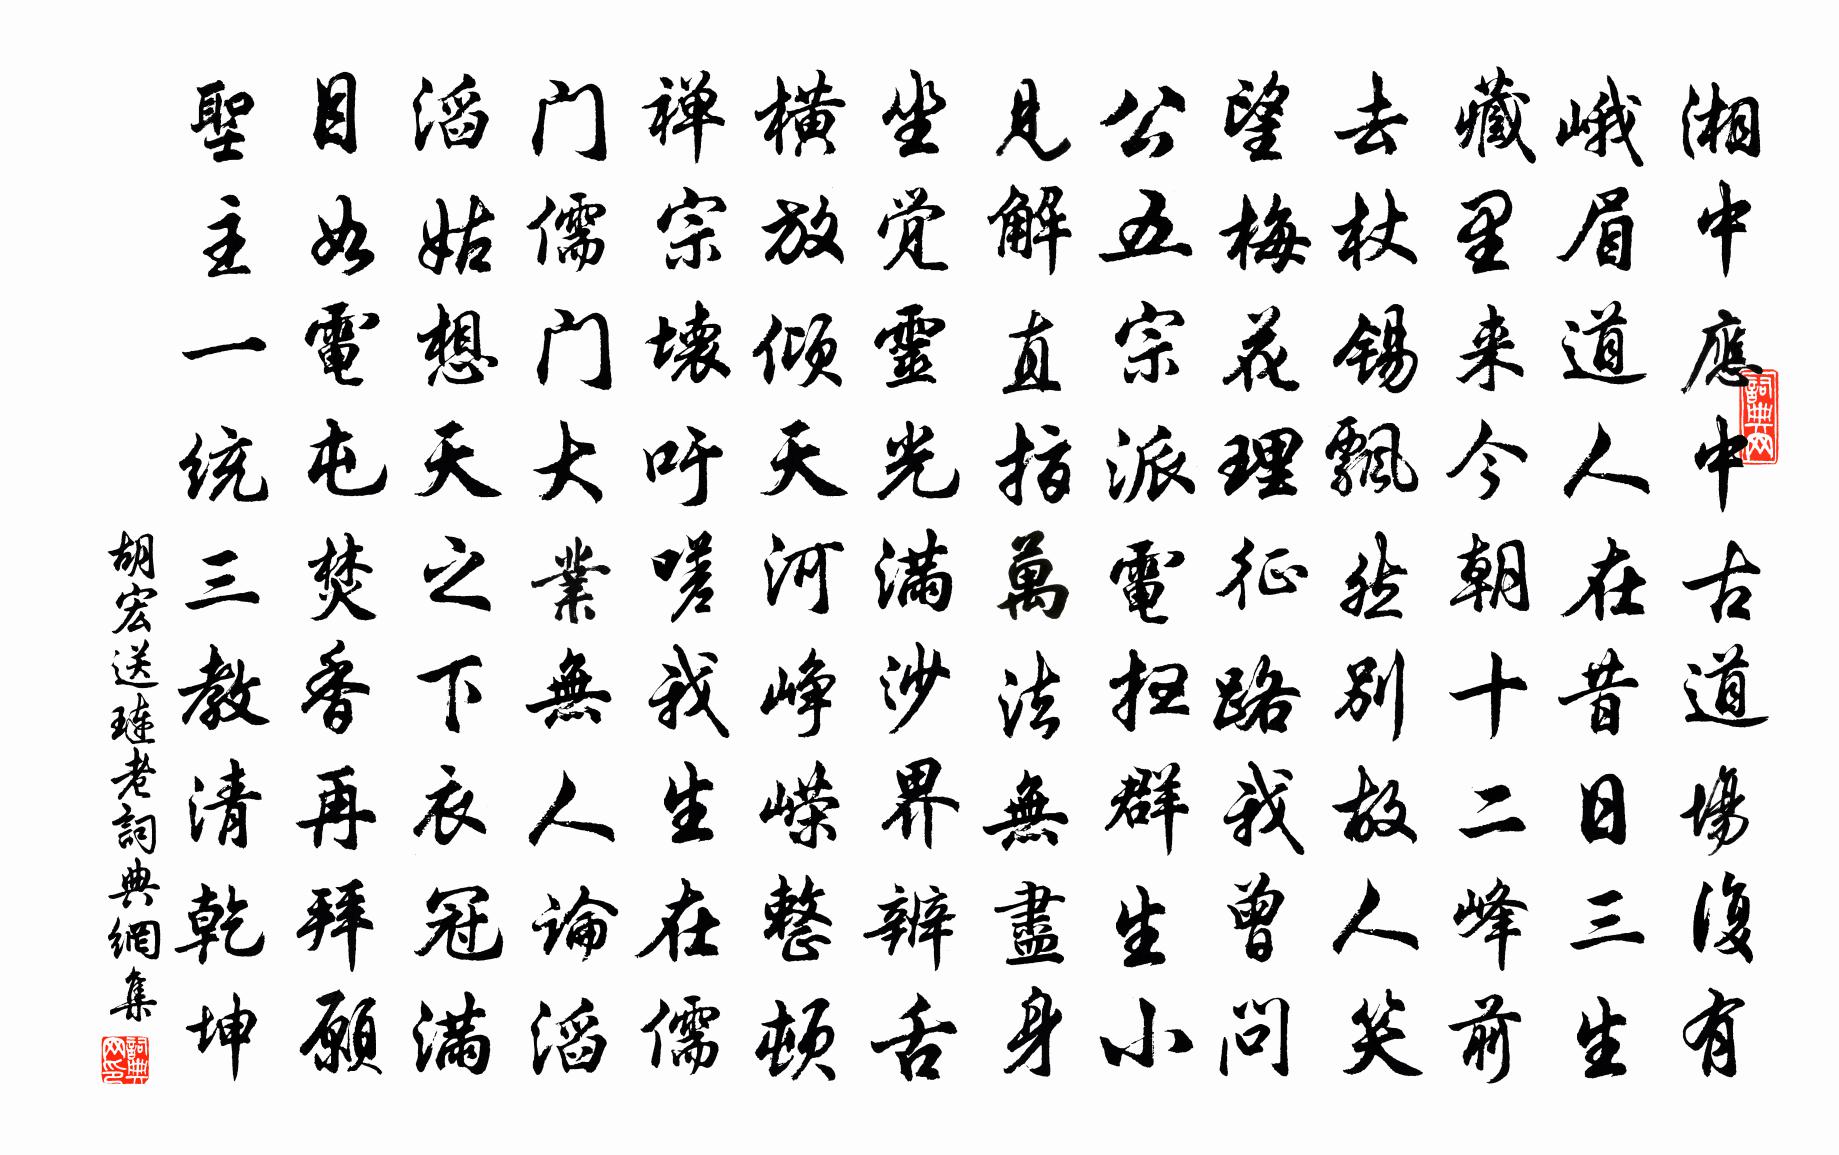 湘中應中古道場復有
峨眉道人在昔日三生
藏里来今朝十二峰前
去杖锡飘然别故人笑
望梅花理征路我曾问
公五宗派電扫群生小
見解直指萬法無盡身
坐觉靈光满沙界辨舌
横放倾天河峥嵘整顿
禅宗壊吁嗟我生在儒
门儒门大業無人论滔
滔姑想天之下衣冠满
目如電屯焚香再拜願
聖主一统三教清乾坤
胡宏送琏老詞典網集
詞典网